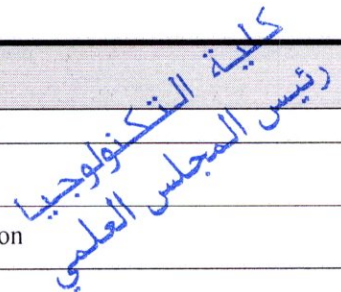 كلية التكنولوجيا
رئيس المجلس العلمي
on